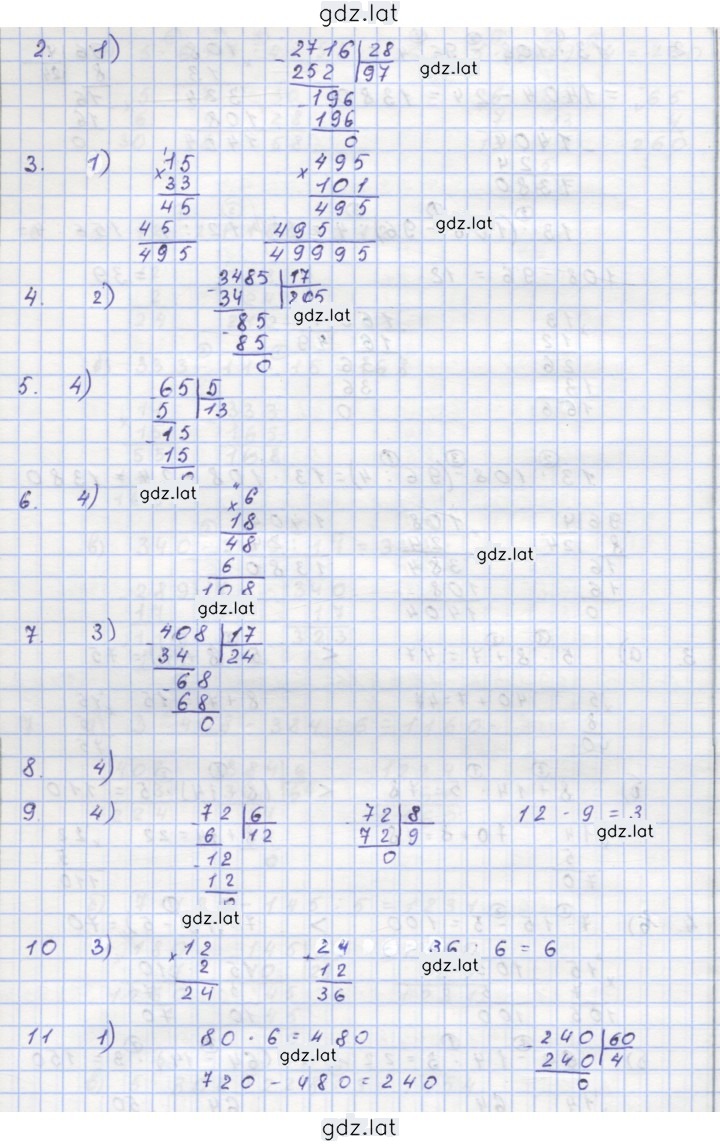 gdz.lat
2. 1) - 2716 | 28
252 | 97
gdz.lat
- 196
196
0
3. 1) × 15 × 495
33 101
45 495
45 495
gdz.lat
495 49995
4. 2) - 3485 | 17
34 | 205
gdz.lat
- 85
85
0
5. 4) - 65 | 5
5 | 13
- 15
15
0
gdz.lat
6. 4) × 6
18
48
gdz.lat
6
108
gdz.lat
7. 3) - 408 | 17
34 | 24
- 68
68
0
8. 4)
9. 4) - 72 | 6 - 72 | 8 12 - 9 = 3
6 | 12 72 | 9
gdz.lat
- 12 0
12
0
gdz.lat
10 3) × 12 + 24 36 : 6 = 6
2 12
gdz.lat
24 36
11 1) 80 · 6 = 480 - 240 | 60
gdz.lat
240 | 4
720 - 480 = 240 0
gdz.lat